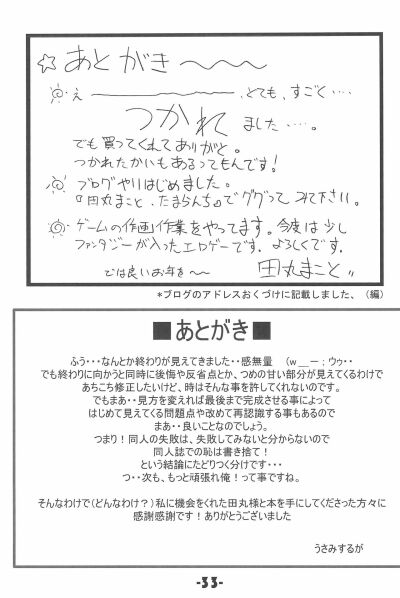 ☆あとがき〜〜〜
え────、とても、すごく‥‥
つかれ ました‥‥。
でも買ってくれてありがと。
つかれたかいもあるってもんです!
ブログやりはじめました。
『田丸まこと、たまらんち』でググってみて下さい。
ゲームの作画作業をやってます。今度は少し
ファンタジーが入ったエロゲーです。よろしくです。
では良いお年を〜〜 田丸まこと〃
*ブログのアドレスおくづけに記載しました、(編)
■あとがき■
ふう・・・なんとか終わりが見えてきました・・感無量 (w__ー;ウゥ・・
でも終わりに向かうと同時に後悔や反省点とか、つめの甘い部分が見えてくるわけで
あちこち修正したいけど、時はそんな事を許してくれないのです。
でもまあ・・見方を変えれば最後まで完成させる事によって
はじめて見えてくる問題点や改めて再認識する事もあるので
まあ・・良いことなのでしょう。
つまり!同人の失敗は、失敗してみないと分からないので
同人誌での恥は書き捨て!
という結論にたどりつく分けです・・・
つ・・次も、もっと頑張れ俺!って事ですね。
そんなわけで(どんなわけ?)私に機会をくれた田丸様と本を手にしてくださった方々に
感謝感謝です!ありがとうございました
うさみするが
-33-